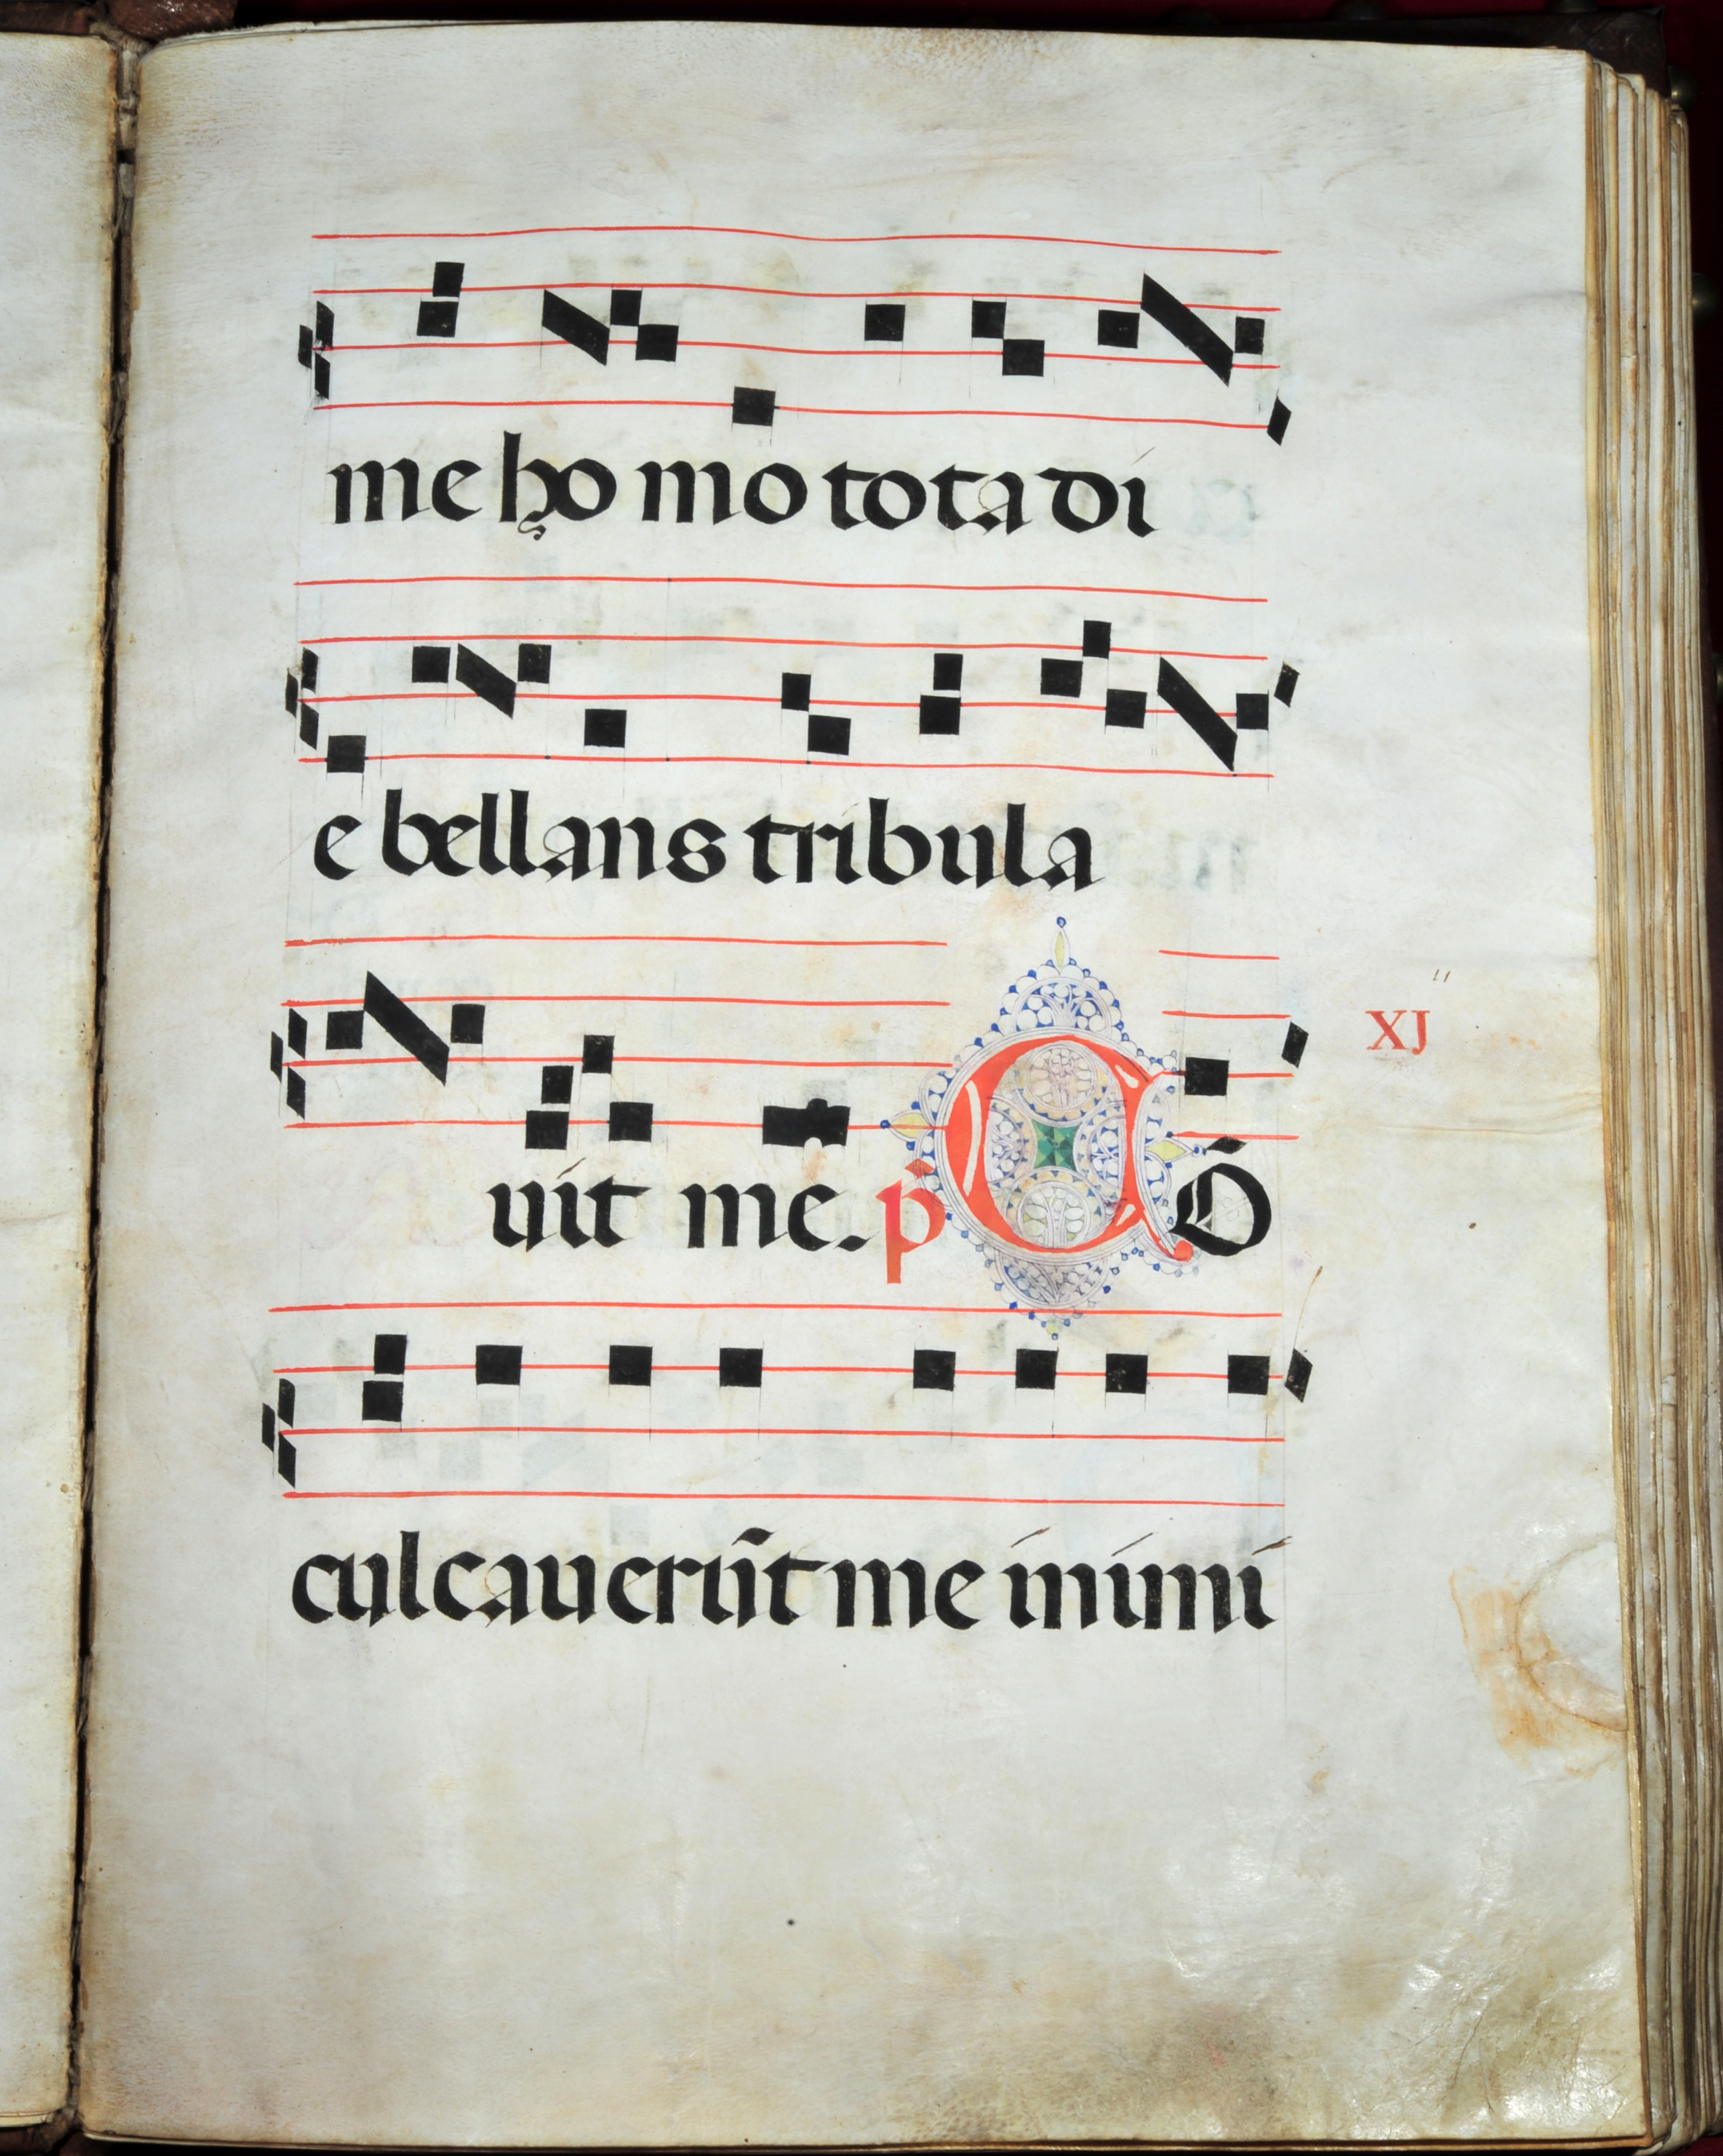 me ho mo tota di
e bellans tribula
uit me. p̄ CÕ
XJ
culcauerũt me inimi